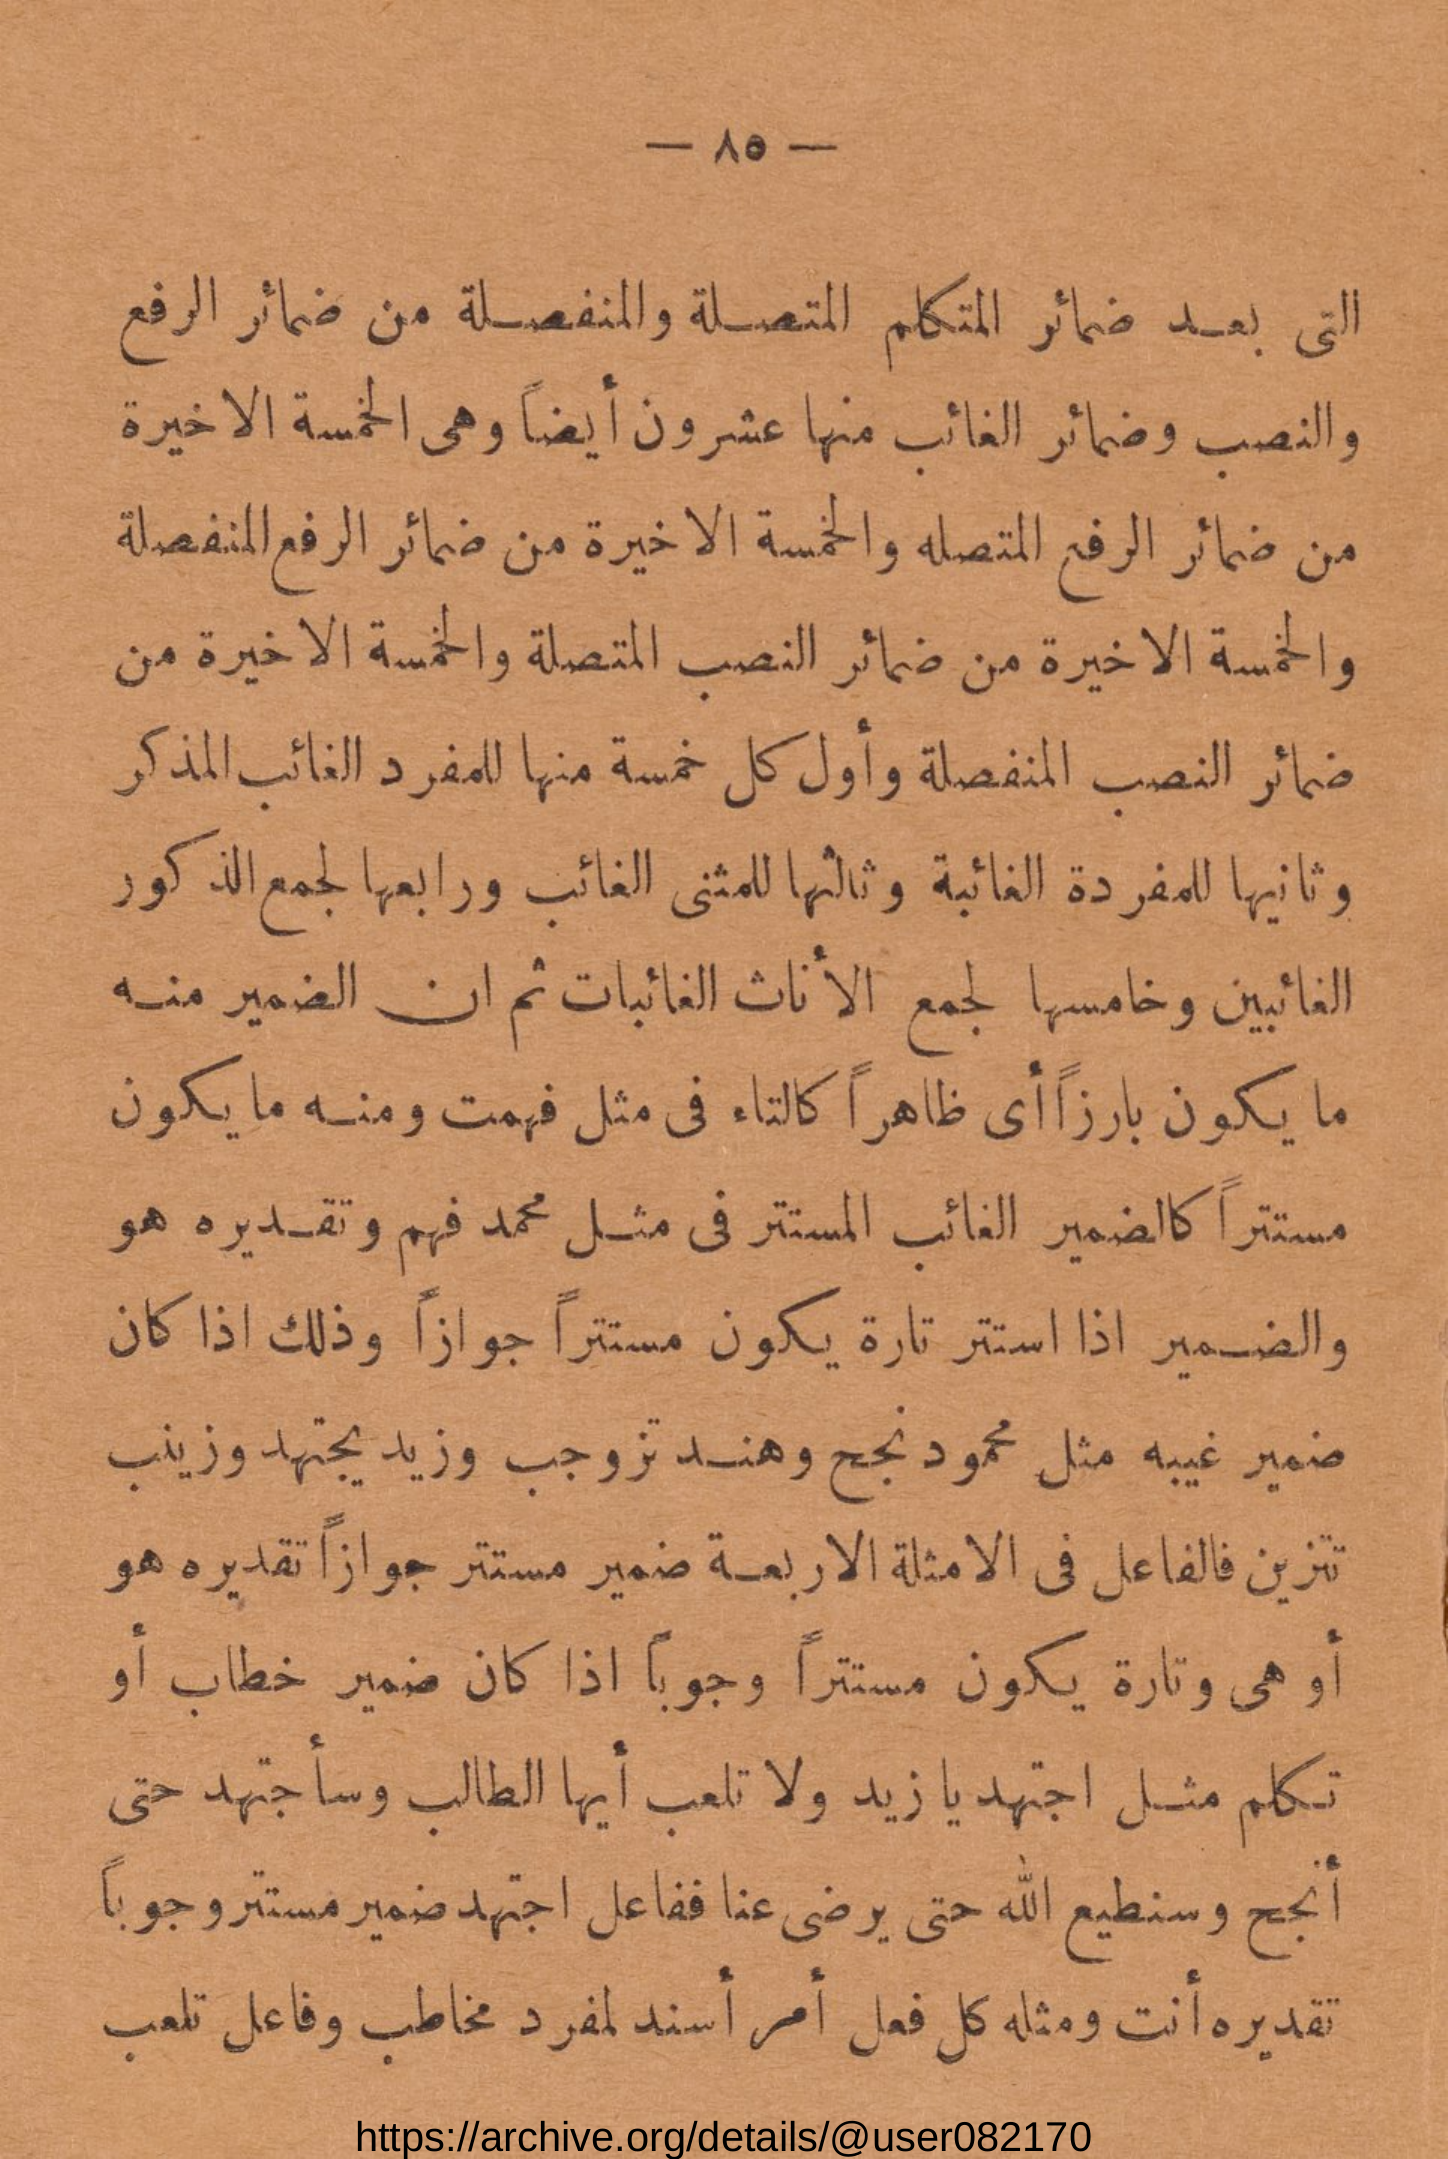 — ٨٥ —
التى بعد ضمائر المتكلم المتصلة والمنفصلة من ضمائر الرفع
والنصب وضمائر الغائب منها عشرون أيضاً وهى الخمسة الاخيرة
من ضمائر الرفع المتصله والخمسة الاخيرة من ضمائر الرفع المنفصلة
والخمسة الاخيرة من ضمائر النصب المتصلة والخمسة الاخيرة من
ضمائر النصب المنفصلة وأول كل خمسة منها للمفرد الغائب المذكر
وثانيها للمفردة الغائبة وثالثها للمثنى الغائب ورابعها لجمع الذكور
الغائبين وخامسها لجمع الأناث الغائبات ثم ان الضمير منه
ما يكون بارزاً أى ظاهراً كالتاء فى مثل فهمت ومنه ما يكون
مستتراً كالضمير الغائب المستتر فى مثل محمد فهم وتقديره هو
والضمير اذا استتر تارة يكون مستتراً جوازاً وذلك اذا كان
ضمير غيبه مثل محمود نجح وهند تزوجب وزيد يجتهد وزينب
تتزين فالفاعل فى الامثلة الاربعة ضمير مستتر جوازاً تقديره هو
أو هى وتارة يكون مستتراً وجوباً اذا كان ضمير خطاب أو
تكلم مثل اجتهد يا زيد ولا تلعب أيها الطالب وسأجتهد حتى
أنجح وسنطيع الله حتى يرضى عنا ففاعل اجتهد ضمير مستتر وجوباً
تقديره أنت ومثله كل فعل أمر أسند لمفرد مخاطب وفاعل تلعب
https://archive.org/details/@user082170